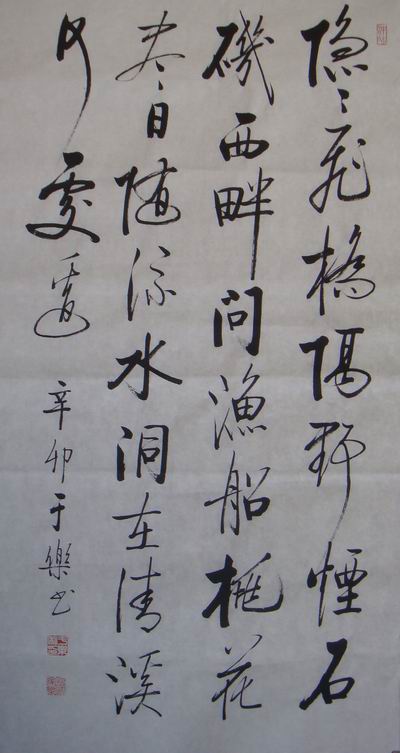 隐〻飛橋隔野煙石
磯西畔問漁船桃花
尽日随流水洞在清溪
何處邊
辛卯于樂书